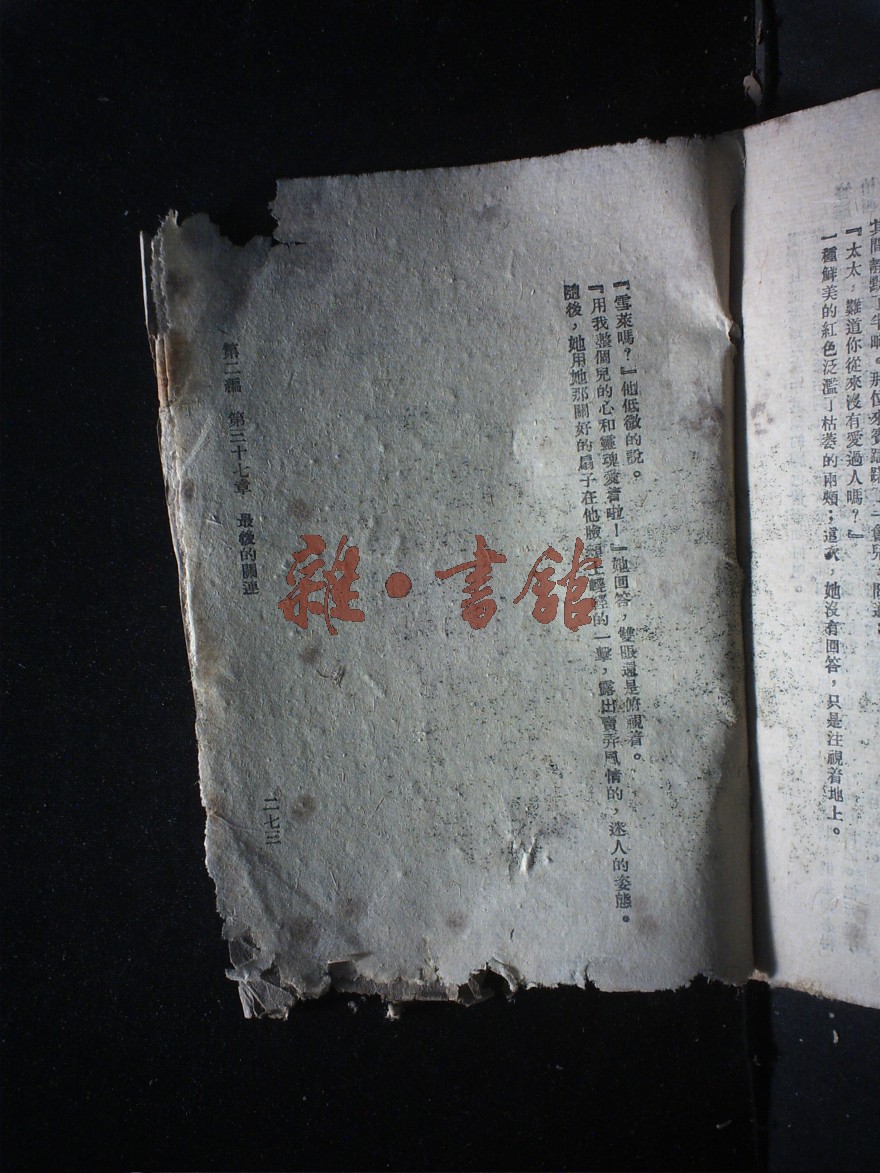 『太太，難道你從來沒有愛過人嗎？』
一種鮮美的紅色泛濫了枯萎的兩頰；這次，她沒有回答，只是注視着地上。
『雪萊嗎？』他低微的說。
『用我整個兒的心和靈魂愛着啦！』她回答，雙眼還是俯視着。
隨後，她用她那關好的扇子在他臉頰上輕輕的一擊，露出賣弄風情的，迷人的姿態。
第二編　第三十七章　最後的關連
二七三
雜·書館